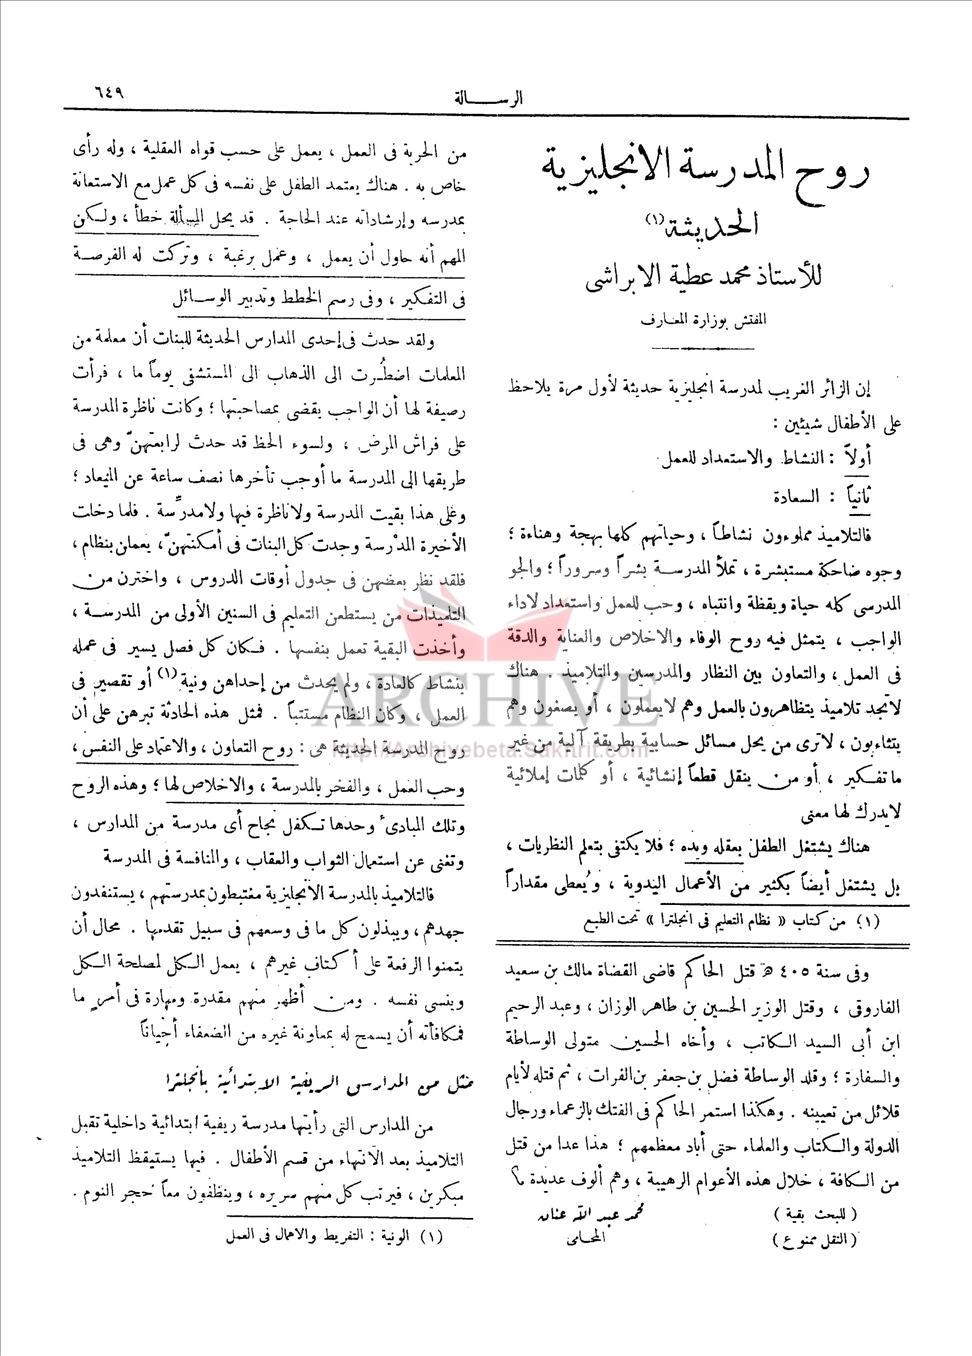 الرسالة
٦٤٩
روح المدرسة الانجليزية
الحديثة (١)
للأستاذ محمد عطية الابراشى
المفتش بوزارة المعارف
إن الزائر الغريب لمدرسة انجليزية حديثة لأول مرة يلاحظ
على الأطفال شيئين :
أولاً : النشاط والاستعداد للعمل
ثانياً : السعادة
فالتلاميذ مملوءون نشاطاً ، وحياتهم كلها بهجة وهناءة ؛
وجوه ضاحكة مستبشرة ، تملأ المدرسة بشراً وسروراً ؛ والجو
المدرسى كله حياة ويقظة وانتباه ، وحب للعمل واستعداد لاداء
الواجب ، يتمثل فيه روح الوفاء والاخلاص والعناية والدقة
فى العمل ، والتعاون بين النظار والمدرسين والتلاميذ . هناك
لاتجد تلاميذ يتظاهرون بالعمل وهم لايعملون ، أو يصغون وهم
يتثاءبون ، لاترى من يحل مسائل حسابية بطريقة آلية من غير
ما تفكير ، أو من ينقل قطعاً إنشائية ، أو كلمات إملائية
لايدرك لها معنى
هناك يشتغل الطفل بعقله ويده ؛ فلا يكتفى بتعلم النظريات ،
بل يشتغل أيضاً بكثير من الأعمال اليدوية ، ويُعطى مقداراً
(١) من كتاب « نظام التعليم فى انجلترا » تحت الطبع
وفى سنة ٤٠٥ هـ قتل الحاكم قاضى القضاة مالك بن سعيد
الفاروقى ، وقتل الوزير الحسين بن طاهر الوزان ، وعبد الرحيم
ابن أبى السيد الكاتب ، وأخاه الحسين متولى الوساطة
والسفارة ؛ وقلد الوساطة فضل بن جعفر بن الفرات ، ثم قتله لأيام
قلائل من تعيينه . وهكذا استمر الحاكم فى الفتك بالزعماء ورجال
الدولة والكتاب والعلماء حتى أباد معظمهم ؛ هذا عدا من قتل
من الكافة ، خلال هذه الأعوام الرهيبة ، وهم ألوف عديدة ؟
( للبحث بقية ) محمد عبد الله عنان
( النقل ممنوع ) المحامى
من الحرية فى العمل ، يعمل على حسب قواه العقلية ، وله رأى
خاص به . هناك يعتمد الطفل على نفسه فى كل عمل مع الاستعانة
بمدرسه وإرشاداته عند الحاجة . قد يحل المسألة خطأ ، ولكن
المهم أنه حاول أن يعمل ، وعمل برغبة ، وتركت له الفرصة
فى التفكير ، وفى رسم الخطط وتدبير الوسائل
ولقد حدث فى إحدى المدارس الحديثة للبنات أن معلمة من
المعلمات اضطُرت الى الذهاب الى المستشفى يوماً ما ، فرأت
رصيفة لها أن الواجب يقضى بمصاحبتها ؛ وكانت ناظرة المدرسة
على فراش المرض ، ولسوء الحظ قد حدث لرابعتهنّ وهى فى
طريقها الى المدرسة ما أوجب تأخرها نصف ساعة عن الميعاد ؛
وعلى هذا بقيت المدرسة ولاناظرة فيها ولامدرِّسة . فلما دخلت
الأخيرة المدْرسة وجدت كل البنات فى أمكنتهنّ ، يعملن بنظام ،
فلقد نظر بعضهن فى جدول أوقات الدروس ، واخترن من
التلميذات من يستطعن التعليم فى السنين الأولى من المدرسة ،
وأخذت البقية تعمل بنفسها . فكان كل فصل يسير فى عمله
بنشاط كالعادة ، ولم يحدث من إحداهن ونية (١) أو تقصير فى
العمل ، وكان النظام مستتباً . فمثل هذه الحادثة تبرهن على أن
روح المدرسة الحديثة هى : روح التعاون ، والاعتماد على النفس ،
وحب العمل ، والفخر بالمدرسة ، والاخلاص لها ؛ وهذه الروح
وتلك المبادئ وحدها تكفل نجاح أى مدرسة من المدارس ،
وتغنى عن استعمال الثواب والعقاب ، والمنافسة فى المدرسة
فالتلاميذ بالمدرسة الانجليزية مغتبطون بمدرستهم ، يستنفدون
جهدهم ، ويبذلون كل ما فى وسعهم فى سبيل تقدمها . محال أن
يتمنوا الرفعة على أكتاف غيرهم ، يعمل الكل لمصلحة الكل
وينسى نفسه . ومن أظهر منهم مقدرة ومهارة فى أمرٍ ما
فمكافأته أن يسمح له بمعاونة غيره من الضعفاء أحياناً
مثل من المدارس الريفية الابتدائية بانجلترا
من المدارس التى رأيتها مدرسة ريفية ابتدائية داخلية تقبل
التلاميذ بعد الانتهاء من قسم الأطفال . فيها يستيقظ التلاميذ
مبكرين ، فيرتب كل منهم سريره ، وينظفون معاً حجر النوم .
(١) الونية : التفريط والاهمال فى العمل
ARCHIVE
http://Archivebeta.Sakhrit.com